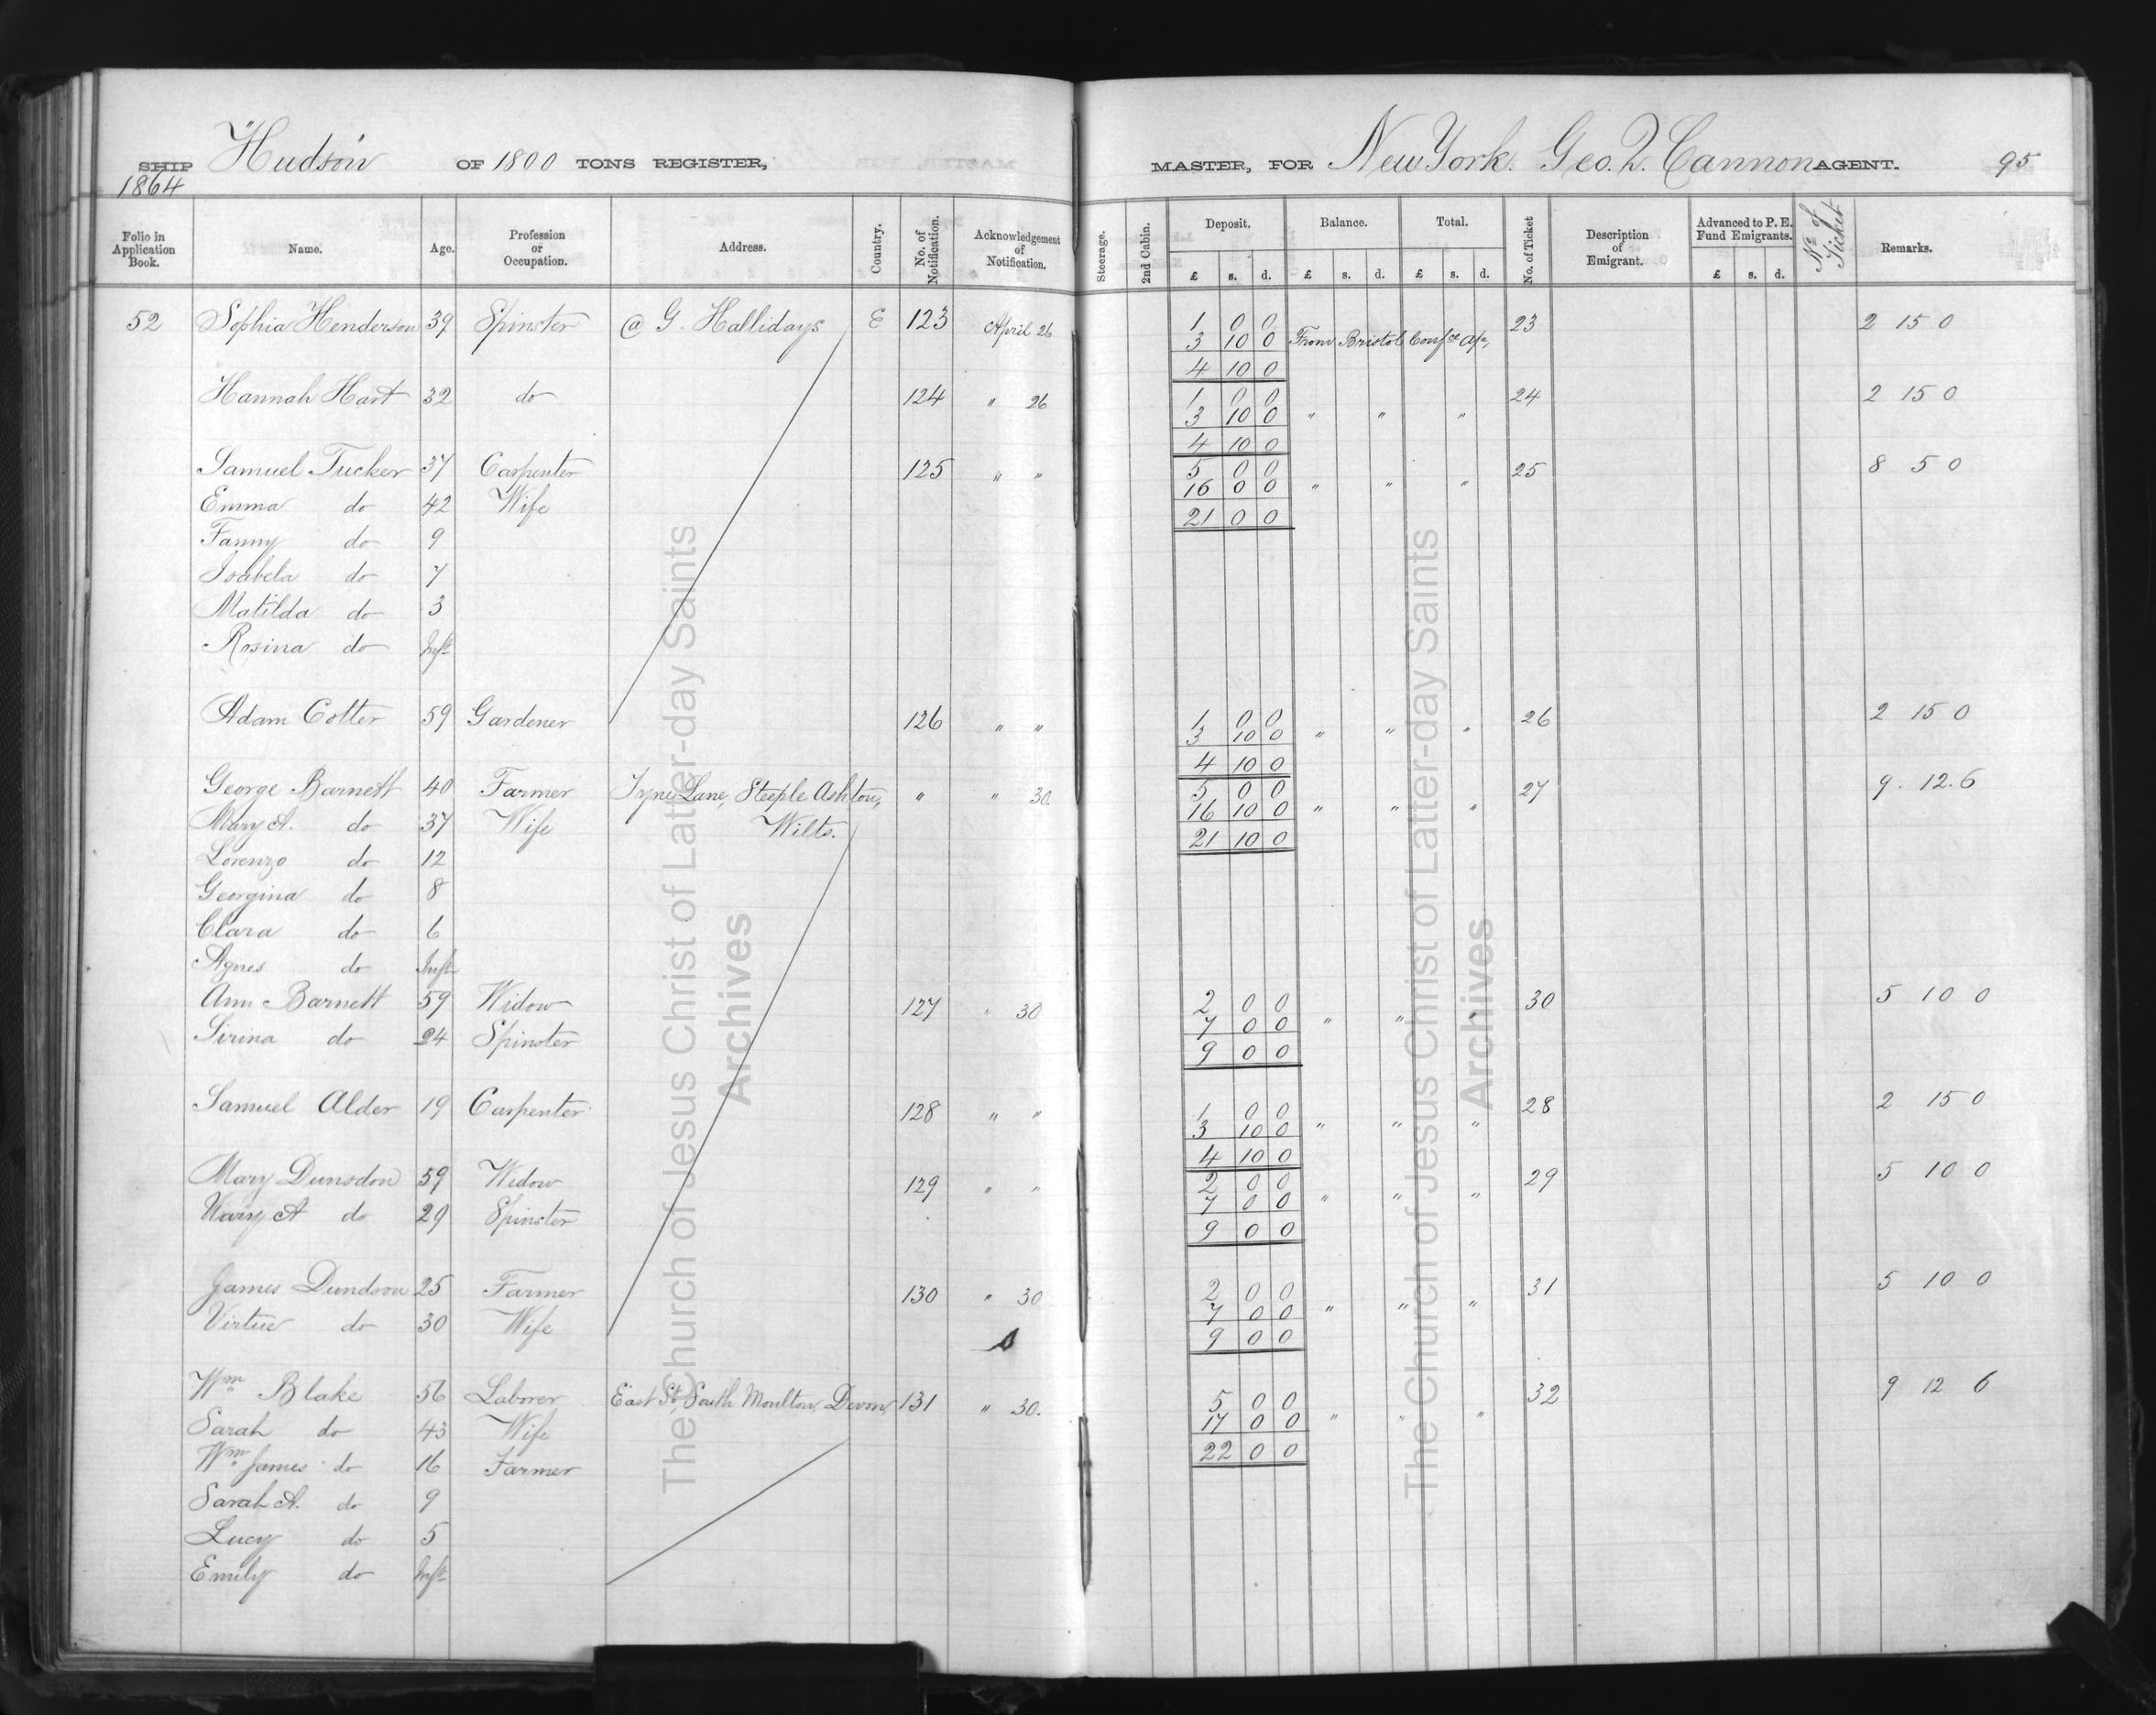 SHIP "Hudson" OF 1800 TONS REGISTER, MASTER, FOR New York. Geo. Q. Cannon AGENT. 95
1864
Folio in Application Book. Name. Age. Profession or Occupation. Address. Country. No. of Notification. Acknowledgement of Notification. Steerage. 2nd Cabin. Deposit. Balance. Total. No. of Ticket Description of Emigrant. Advanced to P. E. Fund Emigrants. No. of Ticket Remarks.
£ s. d. £ s. d. £ s. d. £ s. d.
52 Sophia Henderson 39 Spinster @ G. Hallidays E 123 April 26 1 0 0 23 2 15 0
3 10 0 From Bristol Confce a/c,
4 10 0
Hannah Hart 32 do 124 " 26 1 0 0 24 2 15 0
3 10 0 " " "
4 10 0
Samuel Tucker 37 Carpenter 125 " " 5 0 0 25 8 5 0
16 0 0 " " "
Emma do 42 Wife 21 0 0
Fanny do 9
Isabela do 7
Matilda do 3
Rosina do Inft
Adam Cotter 59 Gardener 126 " " 1 0 0 26 2 15 0
3 10 0 " " "
4 10 0
George Barnett 40 Farmer Lane, Steeple Ashton, " " 30. 5 0 0 27 9. 12. 6
16 10 0 " " "
Mary A. do 37 Wife Wilts. 21 10 0
Lorenzo do 12
Georgina do 8
Clara do 6
Agnes do Inft
Ann Barnett 59 Widow 127 " 30 2 0 0 30 5 10 0
7 0 0 " "
Sirina do 24 Spinster 9 0 0
Samuel Alder 19 Carpenter 128 " " 1 0 0 28 2 15 0
3 10 0 " " "
4 10 0
Mary Dunsdon 59 Widow 129 " " 2 0 0 29 5 10 0
7 0 0 " " "
Mary A do 29 Spinster 9 0 0
James Dundson 25 Farmer 130 " 30 2 0 0 31 5 10 0
7 0 0 " " "
Virtue do 30 Wife 9 0 0
Wm Blake 56 Laborer East St, South Moulton, Devon, 131 " 30. 5 0 0 32 9 12 6
17 0 0 " " "
Sarah do 43 Wife 22 0 0
Wm James do 16 Farmer
Sarah A. do 9
Lucy do 5
Emily do Inft
The Church of Jesus Christ of Latter-day Saints
Archives
The Church of Jesus Christ of Latter-day Saints
Archives